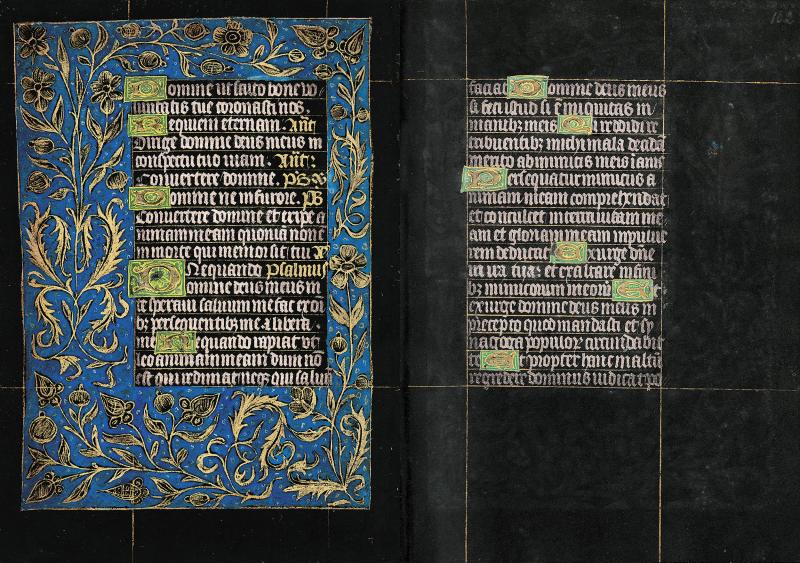 Domine ut scuto bone vo
luntatis tue coronasti nos.
Requiem eternam. Añt
Dirige domine deus meus in
conspectu tuo viam. Añt.
Convertere domine. PS
Domine ne in furore. PS
Convertere domine et eripe a
nimam meam quoniã non e
in morte qui memor sit tui
Nequando Psalmus
Domine deus meus in
te speravi salvum me fac ex oĩ
bꝫ persequentibꝫ me ⁊ libera
me Nequando rapiat ut
leo animam meam dum nõ
est qui redimat neqꝫ qui salvũ
102
faciat Domine deus meus
si feci istud si ẽ iniquitas in
manibꝫ meis Si reddidi re
tribuentibꝫ michi mala decidã
merito ab inimicis meis ianis
Persequatur inimicus a
nimam meam comprehendat
et conculcet in terra vitam me
am et gloriam meam in pulve
rem deducat Exurge dñe
in ira tua et exaltare in fini
bꝫ inimicorum meorũ Et
exurge domine deus meus in
precepto quod mandasti et sy
nagoga populorũ circundabit
te Et propter hanc in altum
regredere dominus iudicat po